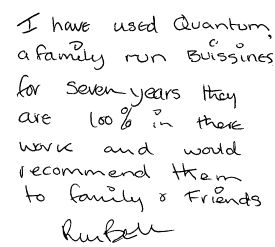 I have used Quantum,
a family run Buissines
for seven years they
are 100% in there
work and would
recommend them
to family & Friends